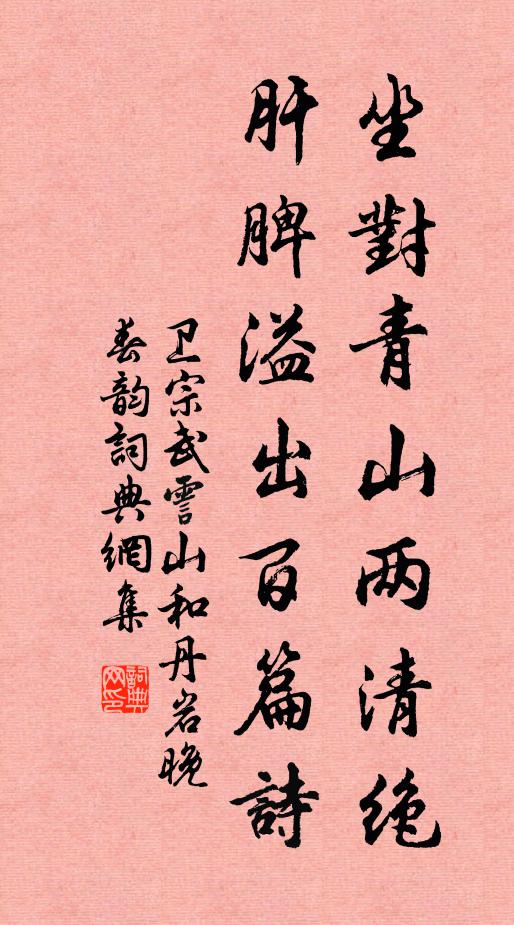 坐對青山两清绝
肝脾溢出百篇詩
卫宗武雲山和丹岩晚
春韵詞典網集
詞典网印